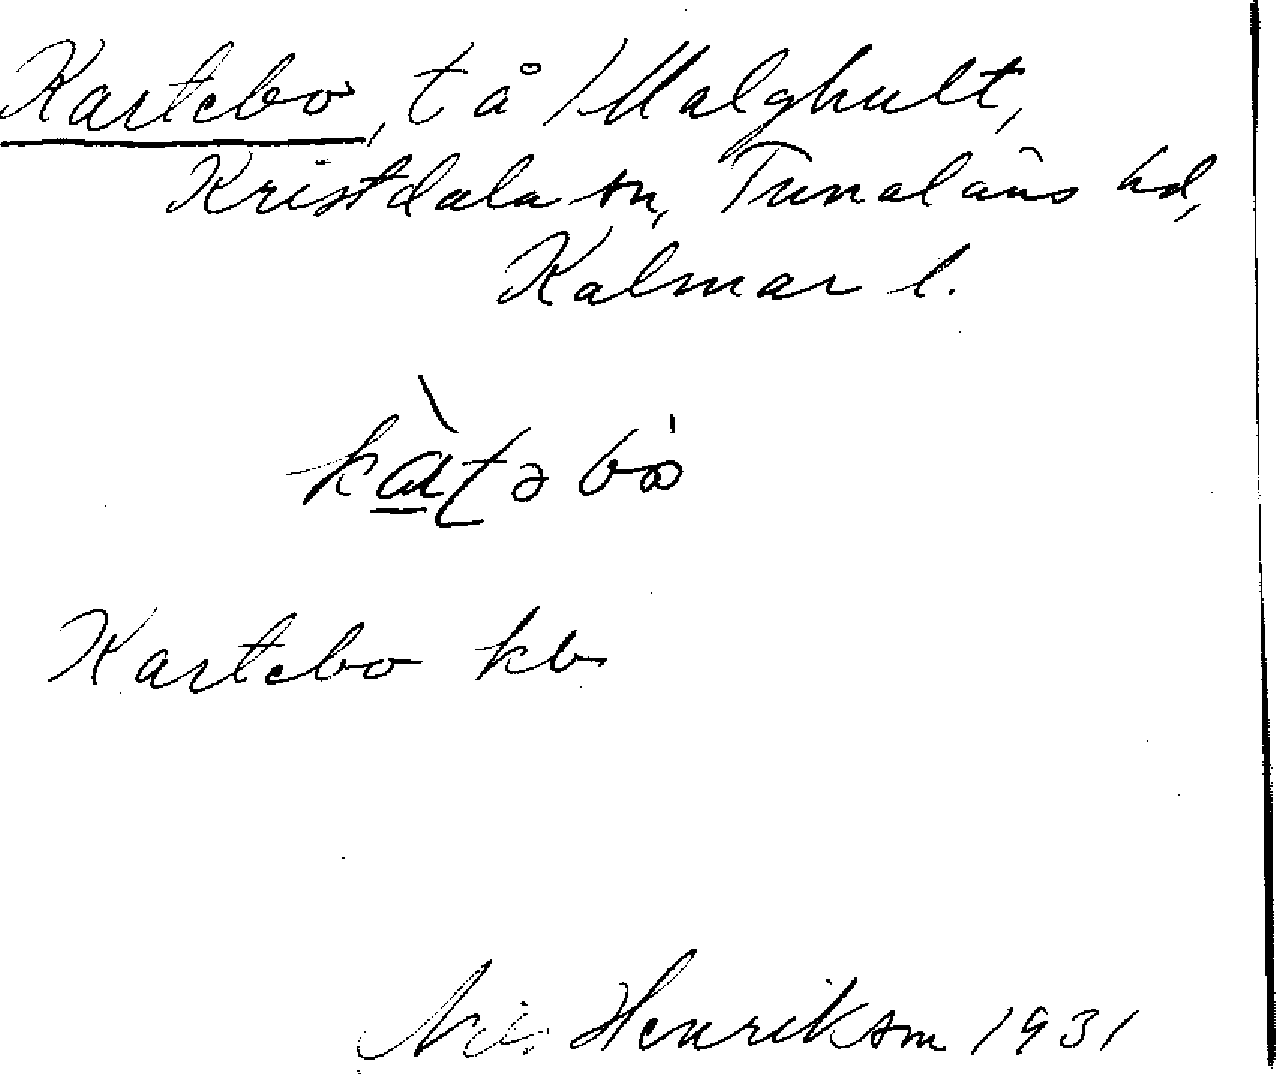 Kartebo, t å /Malghult,
Kristdala sn, Tunaläns hd,
Kalmar l.
kàʈə bò
Kartebo kb
Nils Henrikson 1931